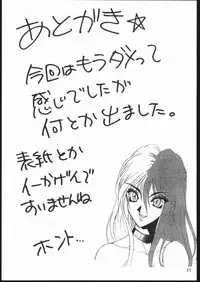 あとがき☆
今回はもうダメって
感じでしたが
何とか出ました。
表紙とか
イーかげイで
すいませんね
ホント…
33